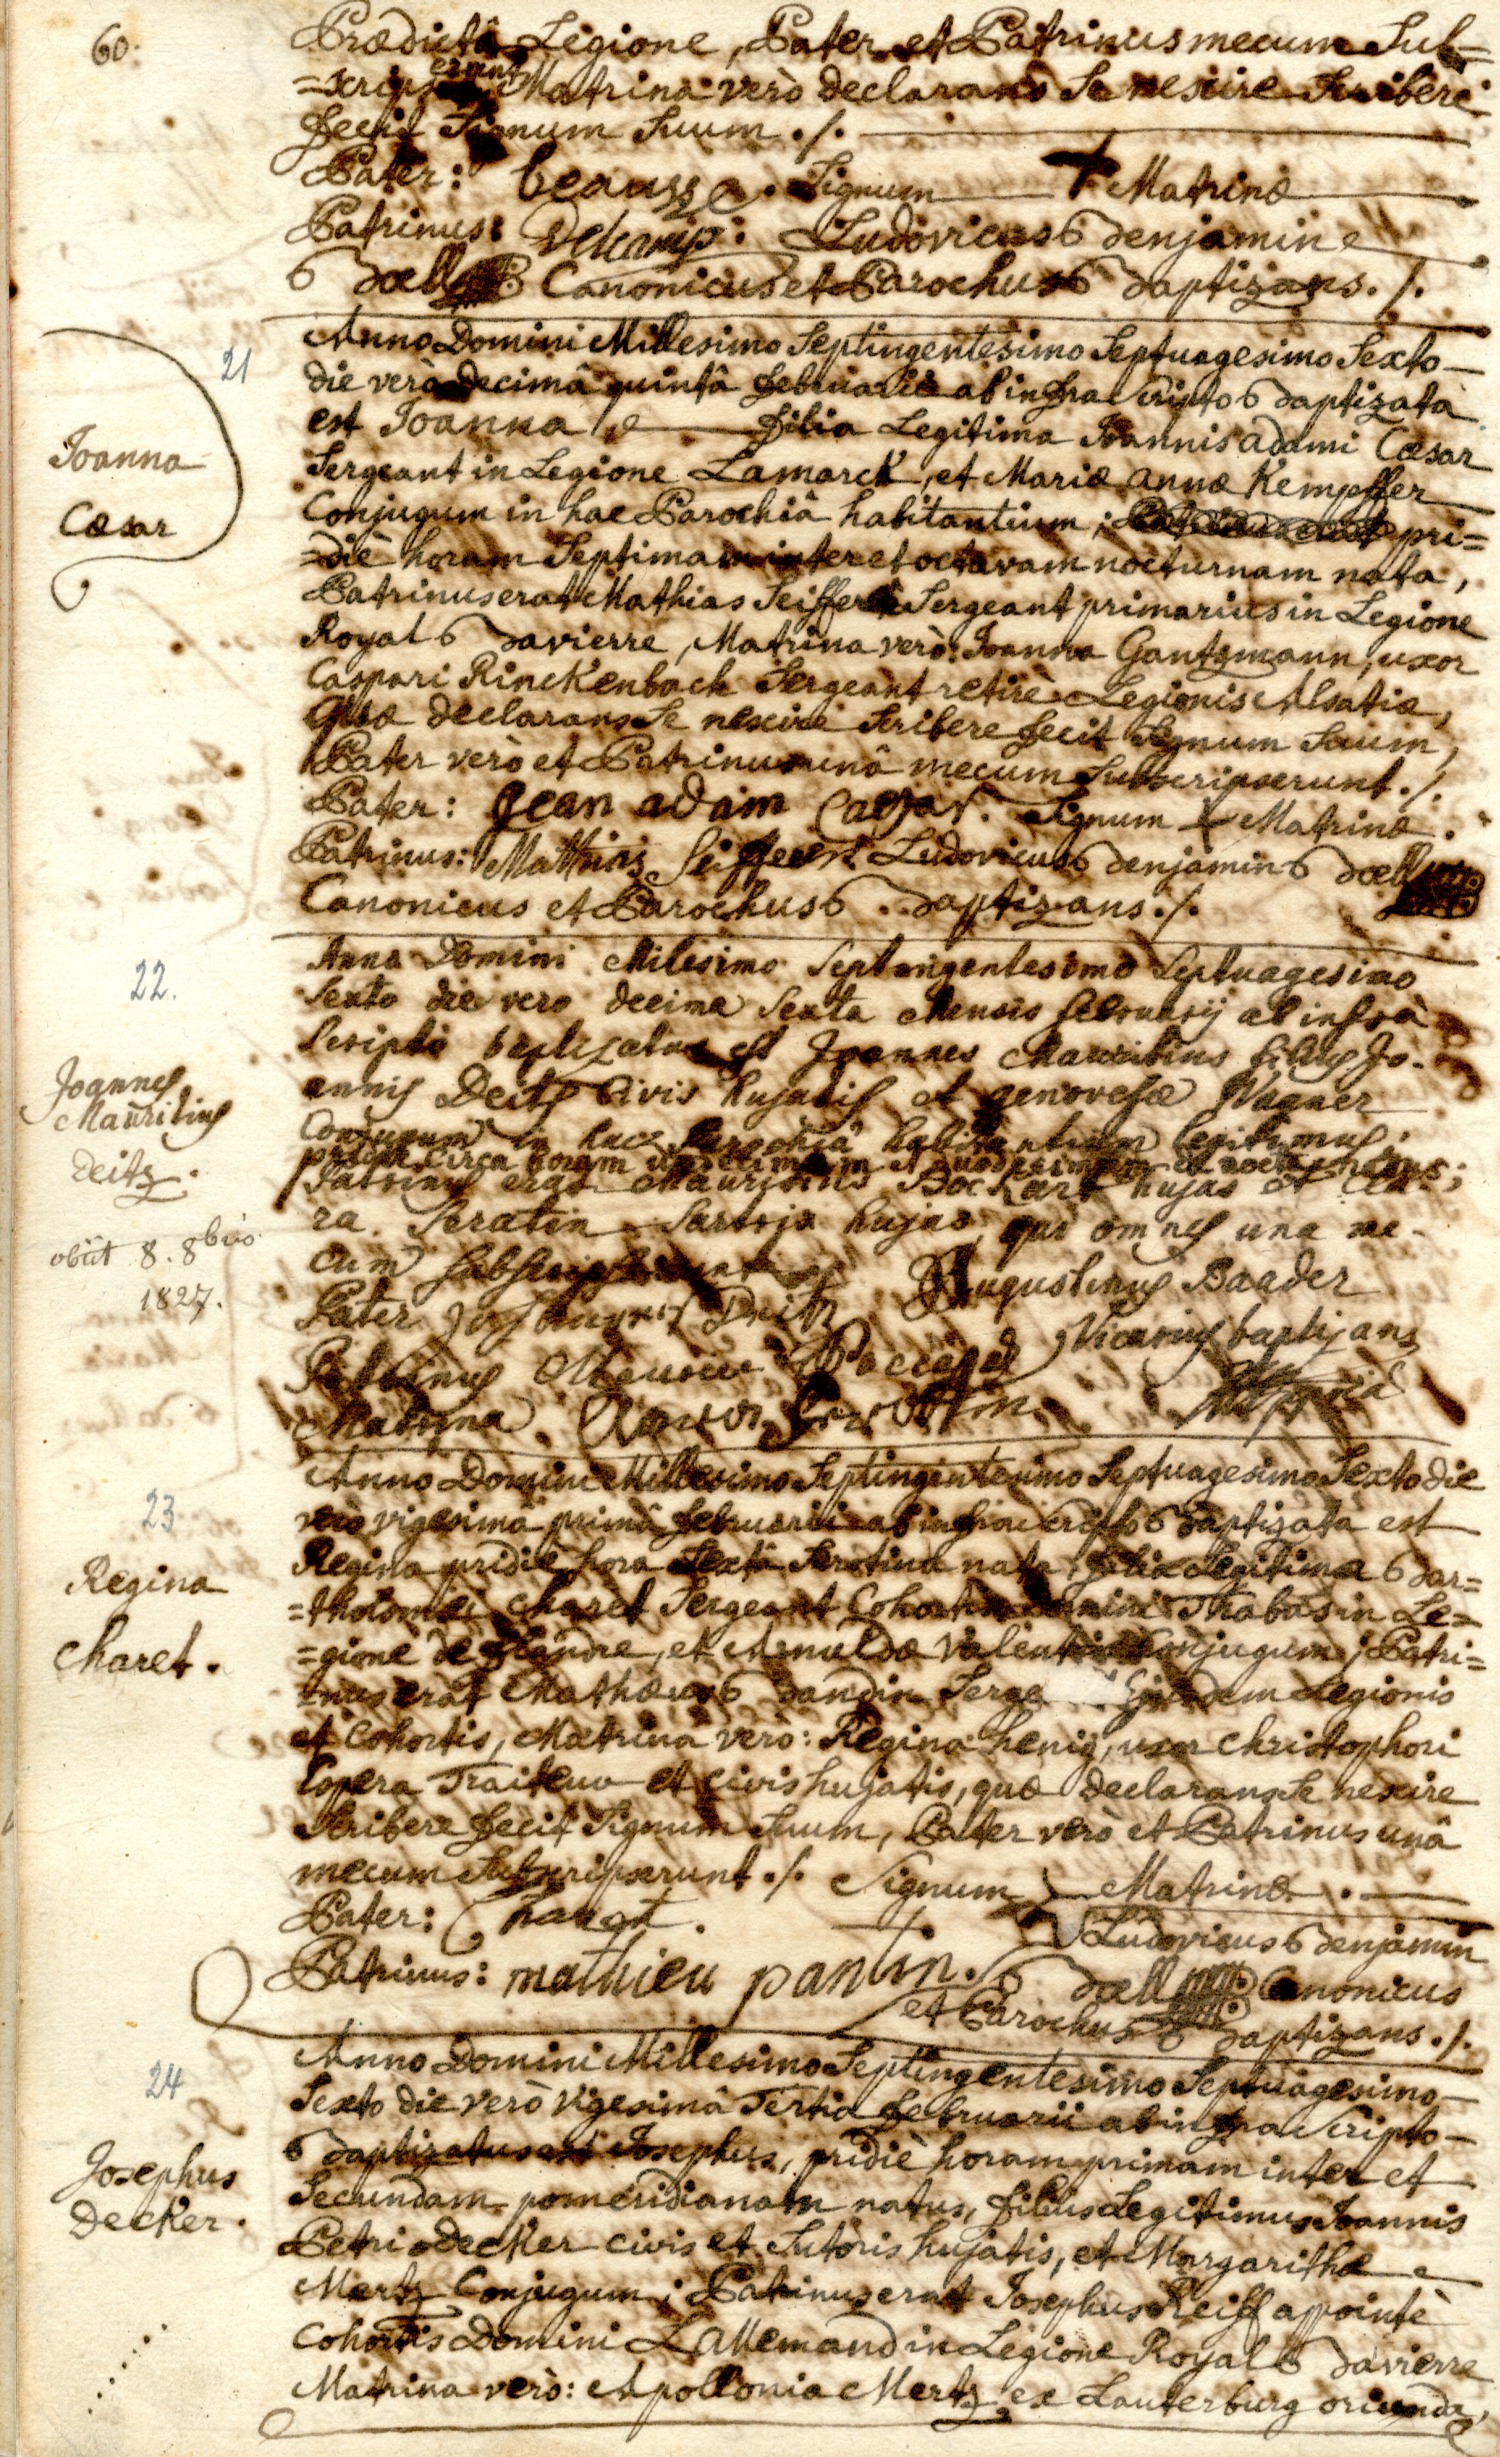 60.
Prædictâ Legione, Pater et Patrinus mecum Sub=
=scripserunt Matrina verò declarans Se nescire Scribere
fecit Signum Suum ./.
Pater: beausse. Signum + Matrinæ
Patrinus: Delcamp: Ludovicus Benjamin
Boell Canonicus et Parochus Baptizans ./.
21
Joanna
Cæsar
Anno Domini Millesimo Septingentesimo Septuagesimo Sexto
die verò decimâ quintâ februarii ab infra Scripto Baptizata
est Joanna filia Legitima Joannis adami Cæsar
Sergeant in Legione Lamarck, et Mariæ annæ Kempffer
Conjugum in hac Parochiâ habitantium; pri=
=diè horam Septimam inter et octavam nocturnam nata,
Patrinus erat Mathias Seiffert Sergeant primarius in Legione
Royal Bavierre, Matrina verò: Joanna Gantzmann, uxor
Caspari Rinckenbach Sergeant retirè Legionis Alsatiæ,
quæ declarans Se nescire Scribere fecit Signum Suum,
Pater verò et Patrinus unâ mecum Subscripserunt ./.
Pater: Jean adam Caesar. Signum + Matrinæ.
Patrinus: Matthias Seiffert. Ludovicus Benjamin Boell
Canonicus et Parochus Baptizans ./.
22.
Joannes
Mauritius
Deitz.
obiit 8. 8bris
1827.
Anno Domini Milesimo Septingentesimo Septuagesimo
Sexto die vero decima Sexta Mensis februarij ab infrà
Scripto baptizatus est Joannes Mauritius filius Jo-
annis Deitz Civis hujatis et genovefæ Wagner
Conjugum in hacce Parochiâ habitantium legitimus;
pridie circa horam undecimam et duodecimam noctis natus;
Patrinus erat Mauritius Bockard hujas et Cla-
ra Seratin hujas qui omnes una me-
cum Subscripserunt Augustinus Baader
Pater Johannes Deitz Vicarius baptizans
Patrinus
Matrina
23
Regina
Charet.
Anno Domini Millesimo Septingentesimo Septuagesimo Sexto die
verò vigesimâ primâ februarii ab infra scripto Baptizata est
Regina pridiè hora Sextâ Serotina nata, filia Legitima Bar=
=tholomæi Charet Sergeant Cohortis Domini Thabas in Le=
=gione de flandre, et Arnuldæ Valentin Conjugum; Patri=
=nus erat Mathæus Bandin Serge Ejusdem Legionis
et Cohortis, Matrina verò: Regina henig, uxor Christophori
Copera Traiteur et civis hujatis, quæ declarans Se nescire
Scribere fecit Signum Suum, Pater verò et Patrinus unâ
mecum Subscripserunt ./. Signum Matrinæ.
Pater: Charet.
Patrinus: mathieu pantin. Ludovicus Benjamin
Boell Canonicus
et Parochus Baptizans ./.
24
Josephus
Decker.
Anno Domini Millesimo Septingentesimo Septuagesimo
Sexto die verò Vigesimâ Tertiâ februarii ab infra Scripto
Baptizatus est Josephus, pridiè horam primam inter et
Secundam pomeridianam natus, filius Legitimus Joannis
Petri Decker civis et Sutoris hujatis, et Margarithæ
Mertz Conjugum; Patrinus erat Josephus Reiff appointè
Cohortis Domini Lallemand in Legione Royal Bavierre
Matrina verò: Apollonia Mertz ex Lauterburg oriunda,